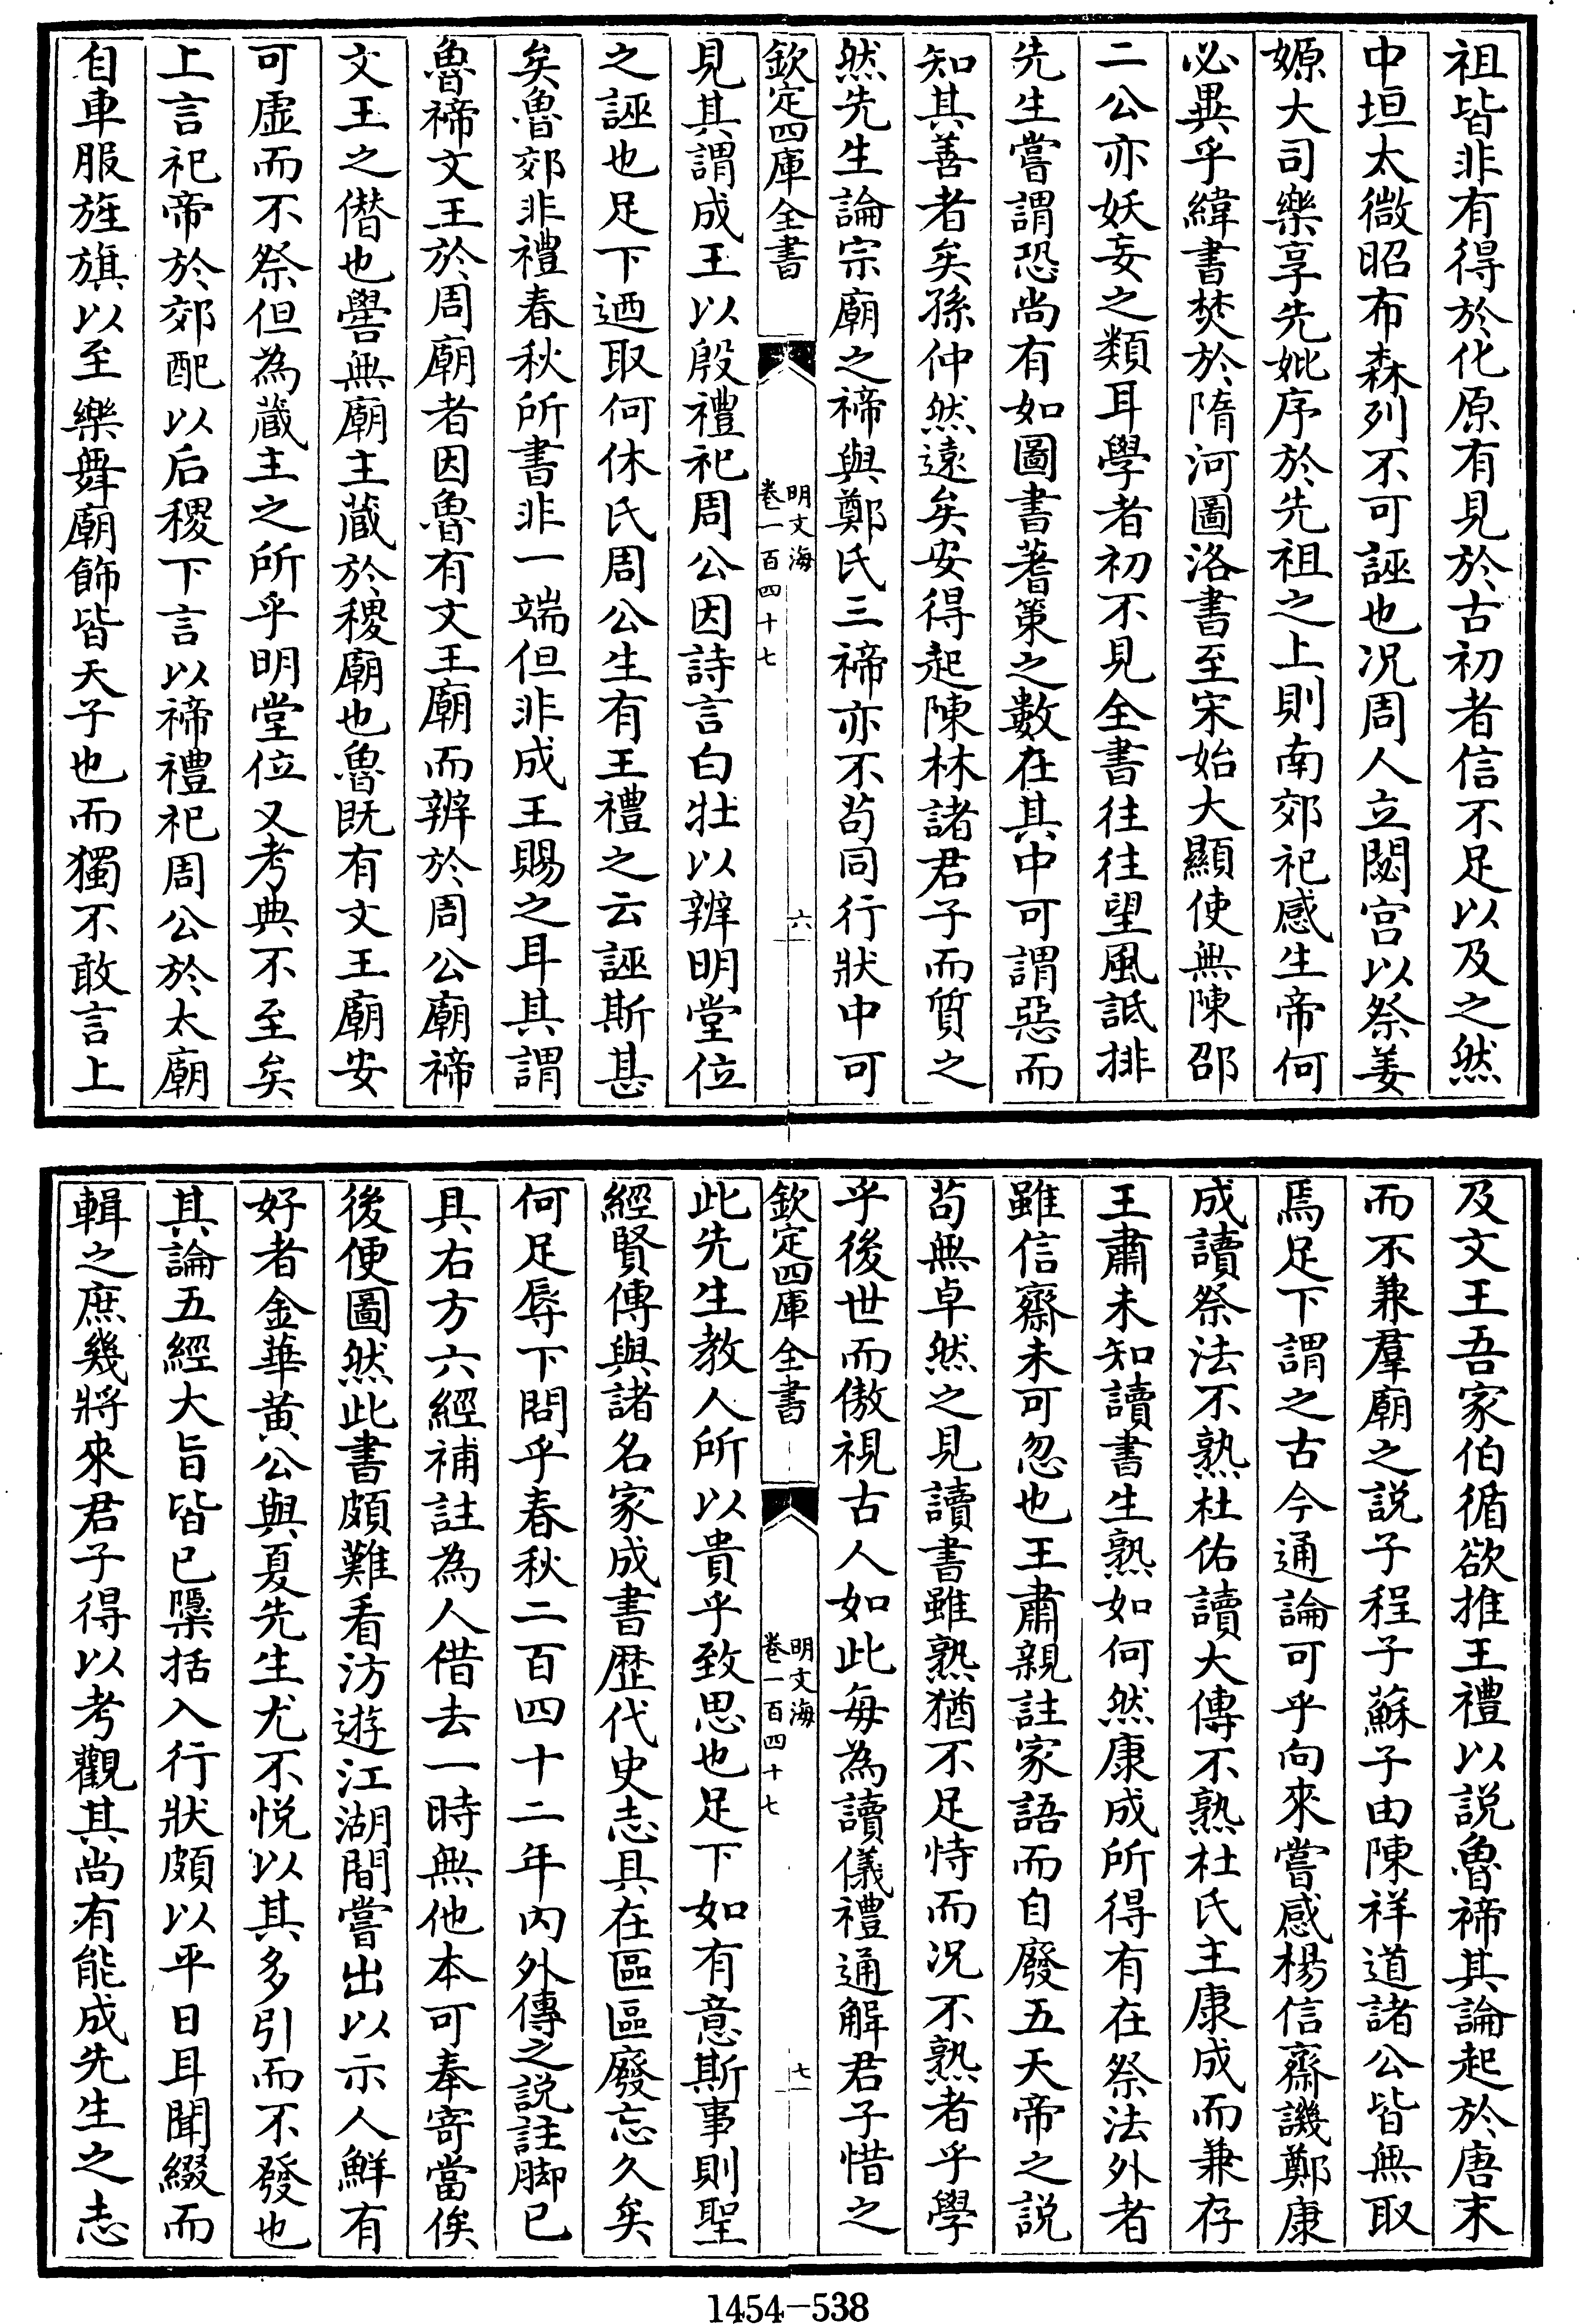 祖皆非有得於化原有見於古初者信不足以及之然
中垣太微昭布森列不可誣也况周人立閟宫以祭姜
嫄大司樂享先妣序於先祖之上則南郊祀感生帝何
必異乎緯書焚於隋河圖洛書至宋始大顯使無陳邵
二公亦妖妄之類耳學者初不見全書往往望風詆排
先生嘗謂恐尚有如圖書蓍策之數在其中可謂惡而
知其善者矣孫仲然遠矣安得起陳林諸君子而質之
然先生論宗廟之禘與鄭氏三禘亦不苟同行狀中可
欽定四庫全書
明文海
卷一百四十七
六
見其謂成王以殷禮祀周公因詩言白牡以辨明堂位
之誣也足下迺取何休氏周公生有王禮之云誣斯甚
矣魯郊非禮春秋所書非一端但非成王賜之耳其謂
魯禘文王於周廟者因魯有文王廟而辨於周公廟禘
文王之僭也嚳無廟主藏於稷廟也魯既有文王廟安
可虛而不祭但為藏主之所乎明堂位又考典不至矣
上言祀帝於郊配以后稷下言以禘禮祀周公於太廟
自車服旌旗以至樂舞廟飾皆天子也而獨不敢言上
及文王吾家伯循欲推王禮以説魯禘其論起於唐末
而不兼羣廟之説子程子蘇子由陳祥道諸公皆無取
焉足下謂之古今通論可乎向來嘗感楊信齋譏鄭康
成讀祭法不熟杜佑讀大傳不熟杜氏主康成而兼存
王肅未知讀書生熟如何然康成所得有在祭法外者
雖信齋未可忽也王肅親註家語而自廢五天帝之説
苟無卓然之見讀書雖熟猶不足恃而况不熟者乎學
乎後世而傲視古人如此每為讀儀禮通解君子惜之
欽定四庫全書
明文海
卷一百四十七
七
此先生教人所以貴乎致思也足下如有意斯事則聖
經賢傳與諸名家成書歴代史志具在區區廢忘久矣
何足辱下問乎春秋二百四十二年内外傳之説註脚已
具右方六經補註為人借去一時無他本可奉寄當俟
後便圖然此書頗難看汸遊江湖間嘗出以示人鮮有
好者金華黄公與夏先生尤不悦以其多引而不發也
其論五經大旨皆已檃括入行狀頗以平日耳聞綴而
輯之庶幾將來君子得以考觀其尚有能成先生之志
1454-538